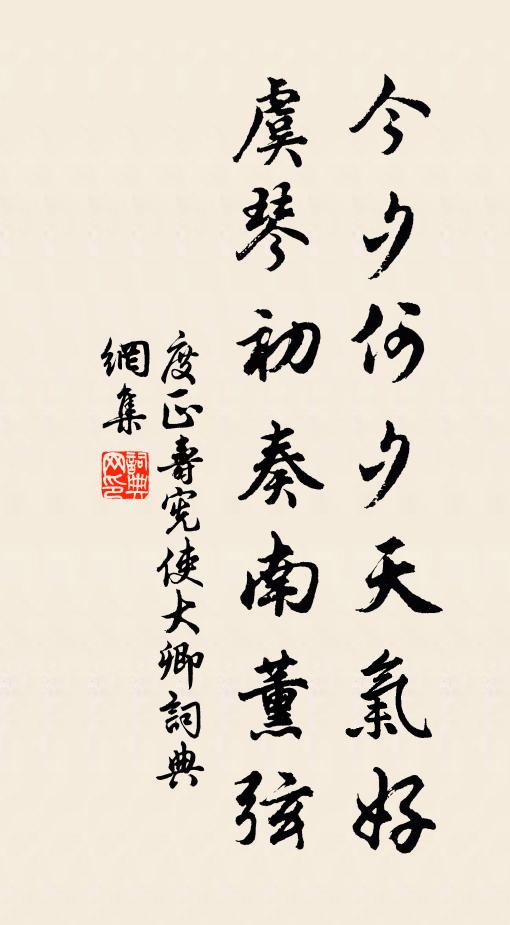 今夕何夕天氣好
虞琴初奏南薰弦
度正壽憲使大卿詞典
網集
詞典網印